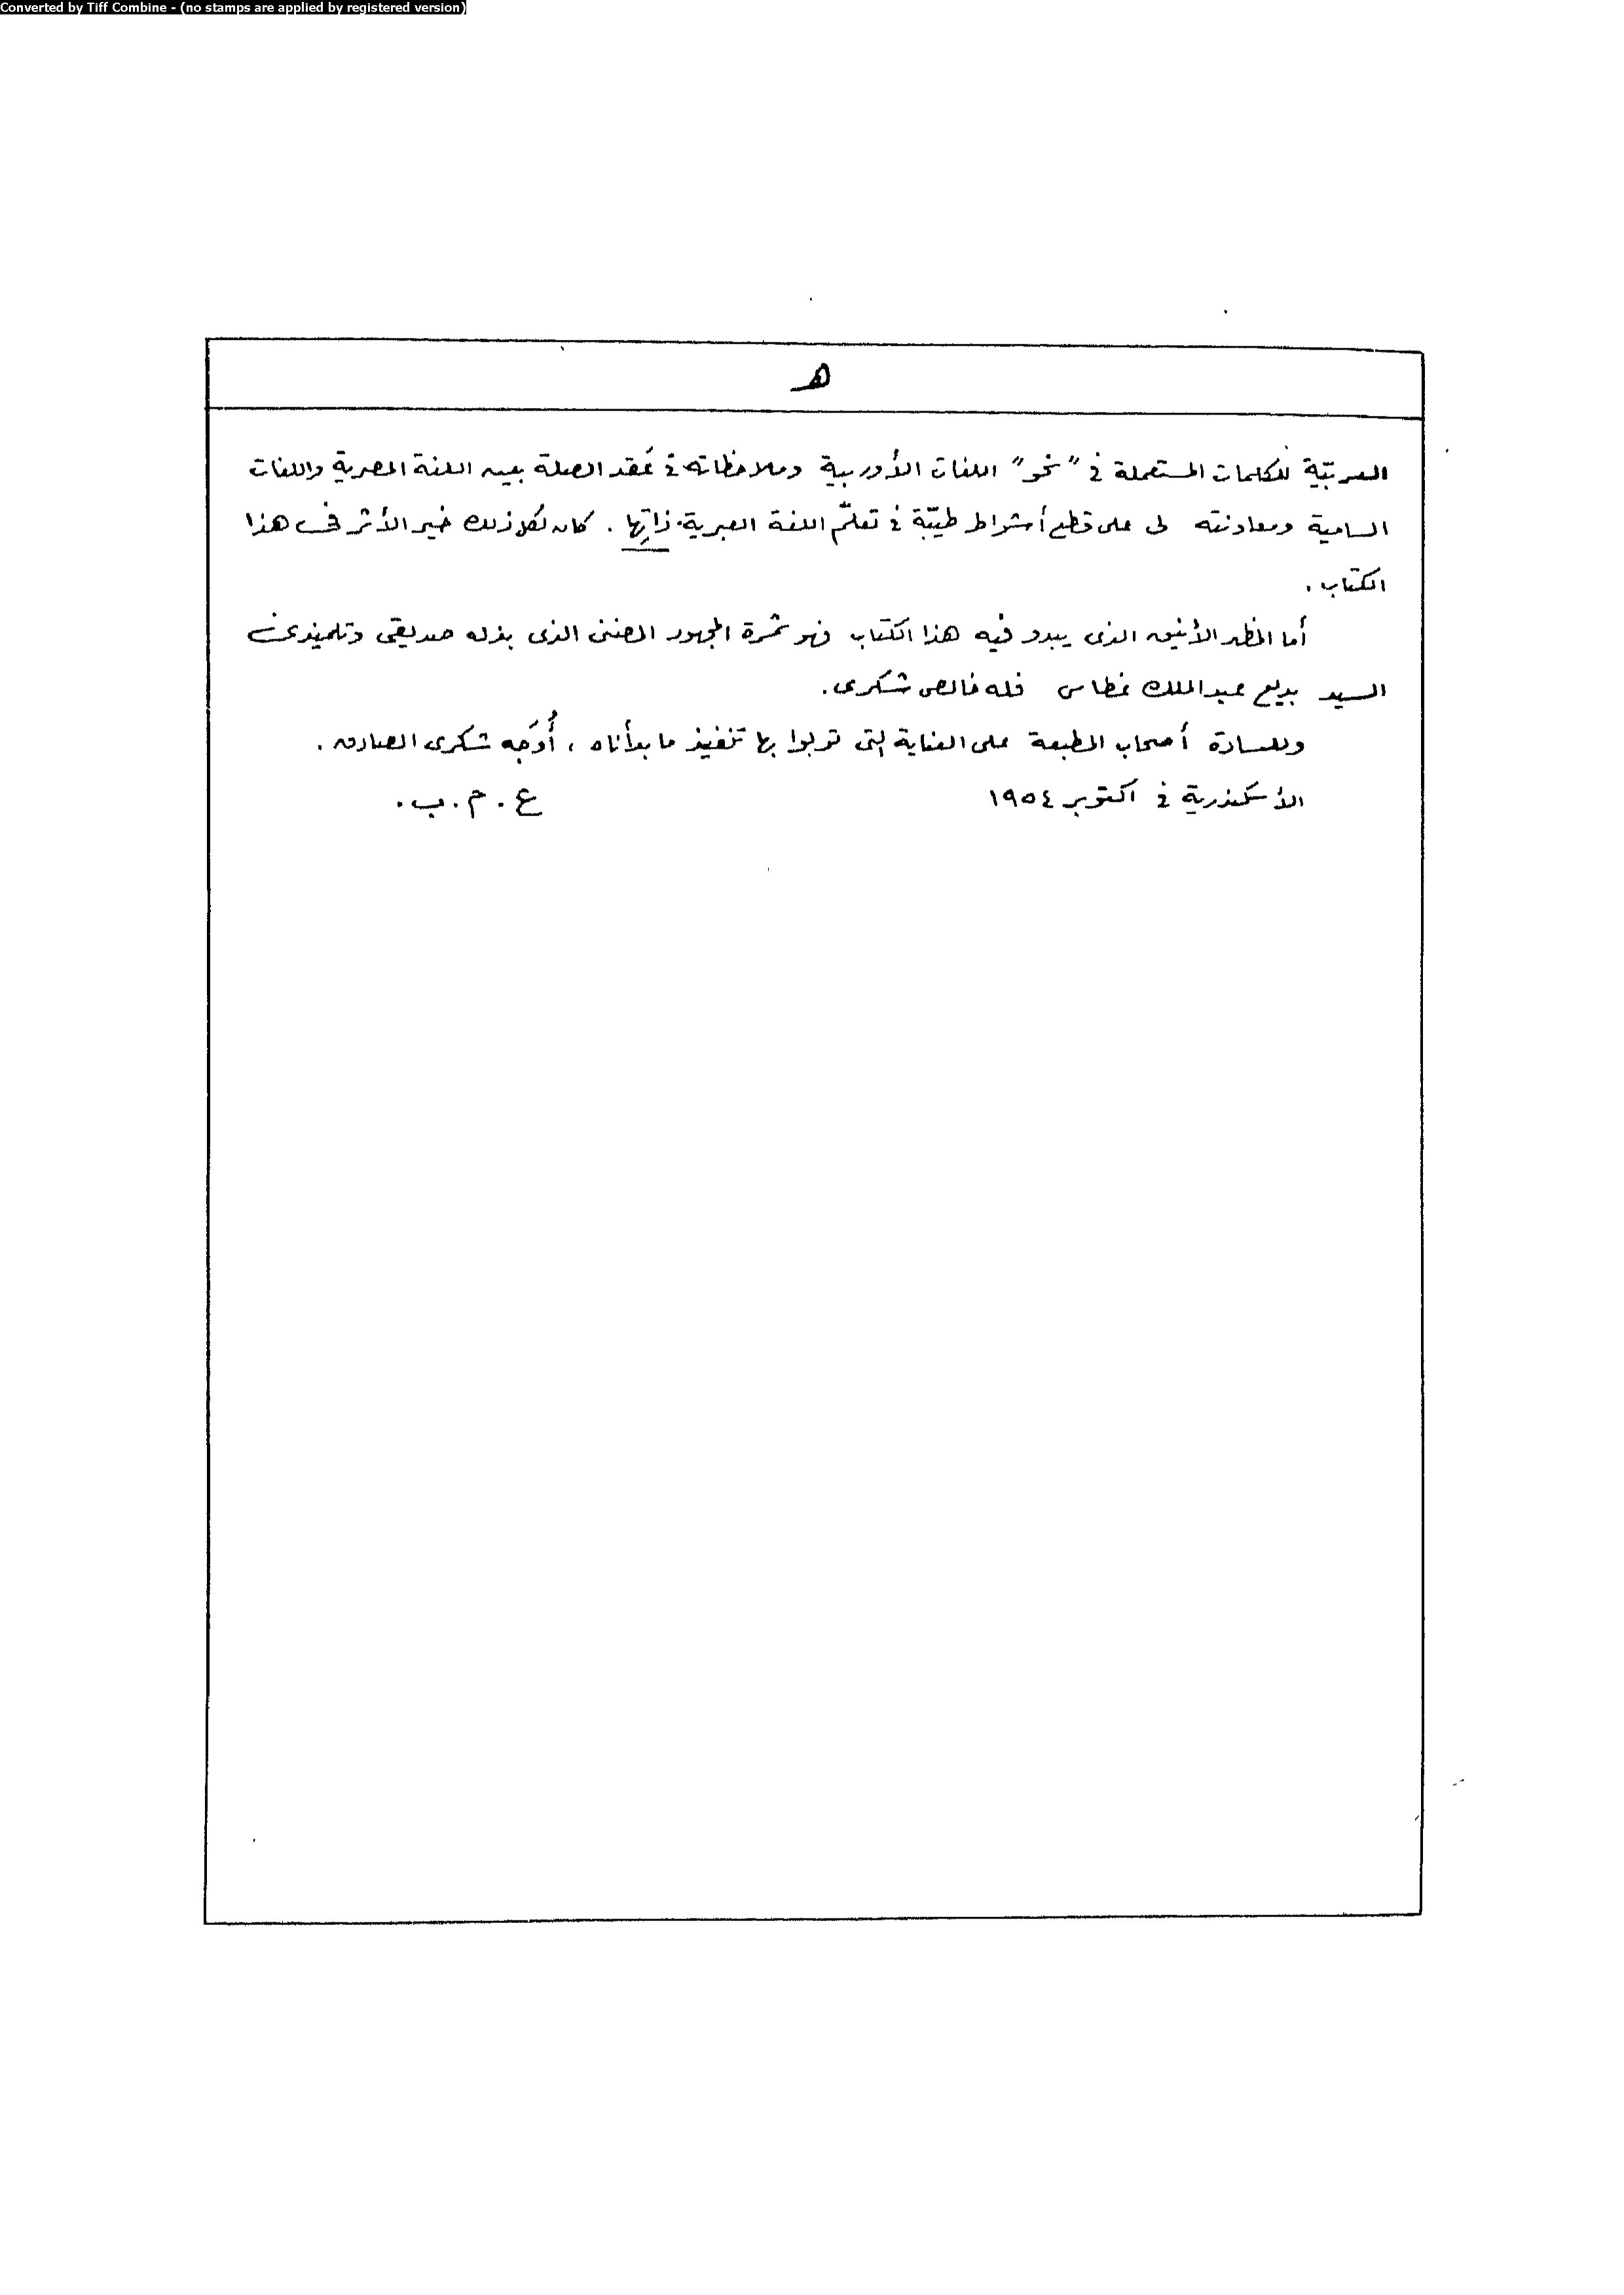 Converted by Tiff Combine - (no stamps are applied by registered version)
هـ
العربيّة للكلمات المستعملة فى "نحو" اللغات الأوربية وملاحظاته فى عَقد الصلة بين اللغة المصرية واللغات
السامية ومعاونته لى على قطع أشواط طيّبة فى تعلّم اللغة العبرية ذاتِها . كان لكل ذلك خير الأثر فى هذا
الكتاب .
أما المظهر الأنيق الذى يبدو فيه هذا الكتاب فهو ثمرة المجهود المضنى الذى بذله صديقى وتلميذى
السيد بديع عبد الملك غطاس فله خالص شكرى .
وللسادة أصحاب المطبعة على العناية التى قوبلوا بها تنفيذ ما بدأناه ، أُوَجه شكرى الصادق .
الأسكندرية فى اكتوبر ١٩٥٤ ع . م . ب .